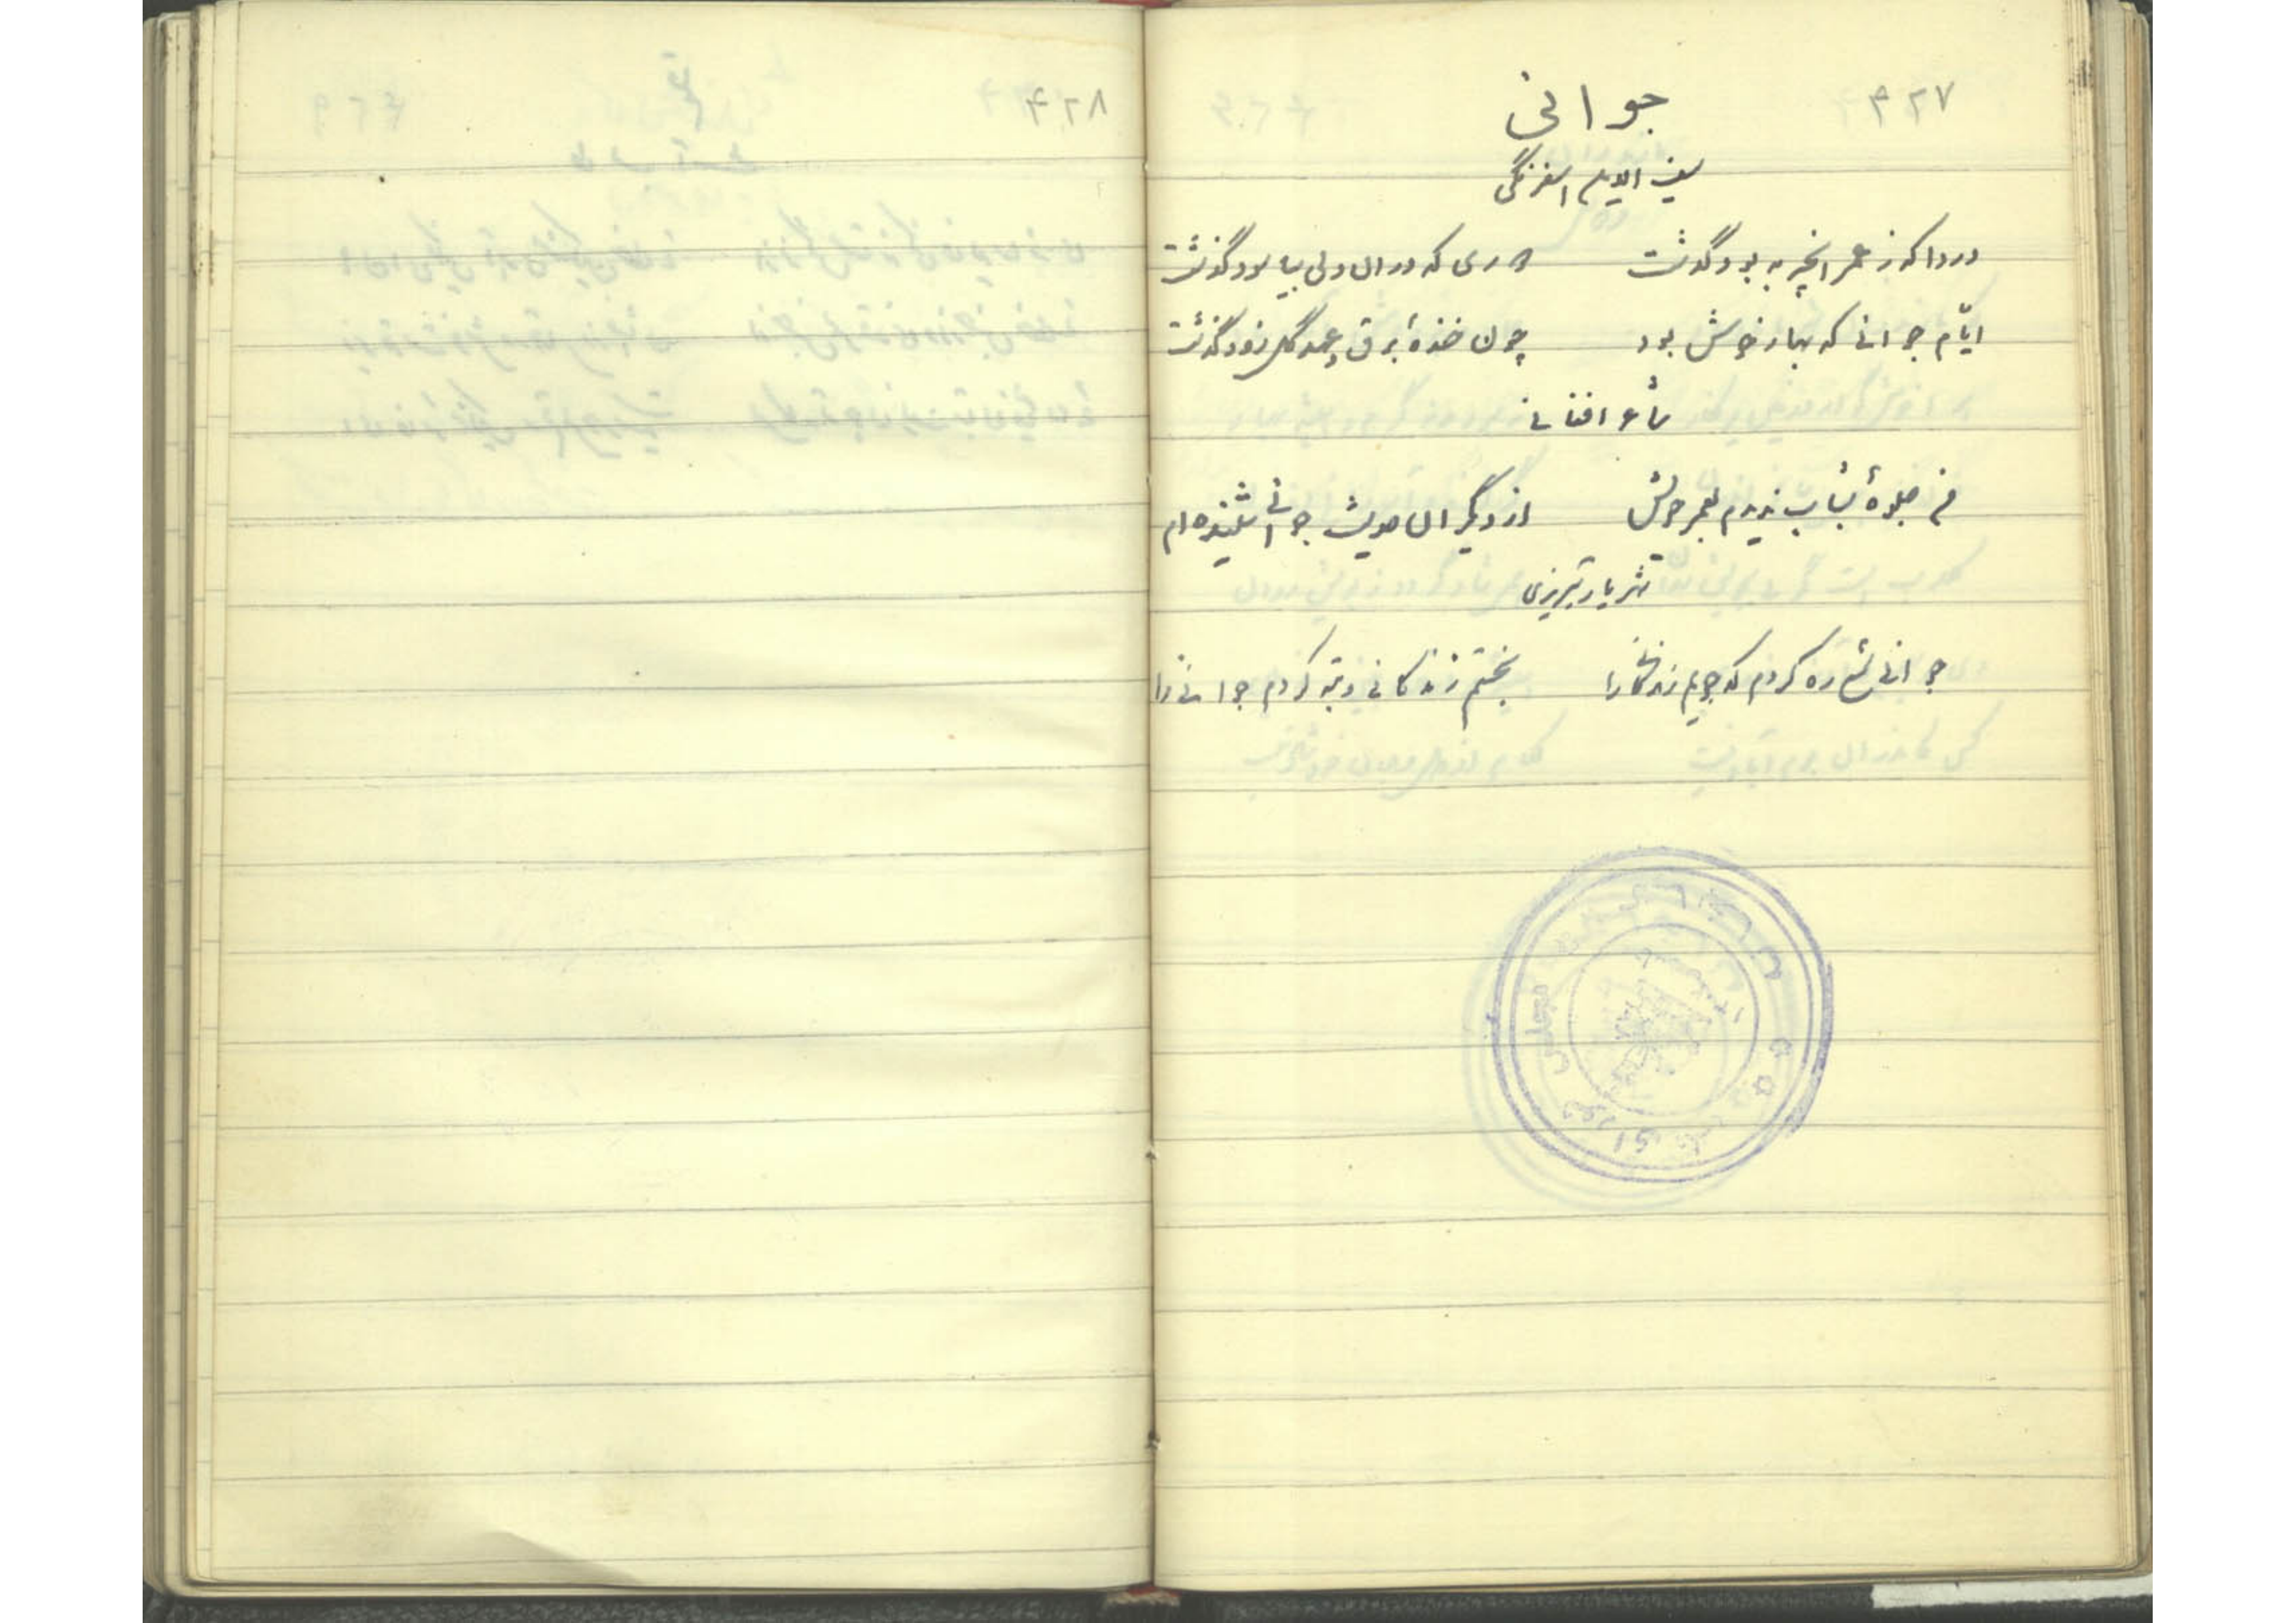 ۴۲۷
جوانی
سیف الدین اسفرنگی
دردا که ز عمر آنچه به بود گذشت کاری که در آن دلی بیاسود گذشت
ایّام جوانی که بهار خوش بود چون خندهٔ برق و عهد گل زود گذشت
شاعر افغانی
من جلوهٔ شباب ندیدم بعمر خویش از دیگران حدیث جوانی شنیده‌ام
شهریار تبریزی
جوانی شمع ره کردم که جویم زندگانی را نجستم زندگانی و تبه کردم جوانی را
مجلس شورای
۴۲۸